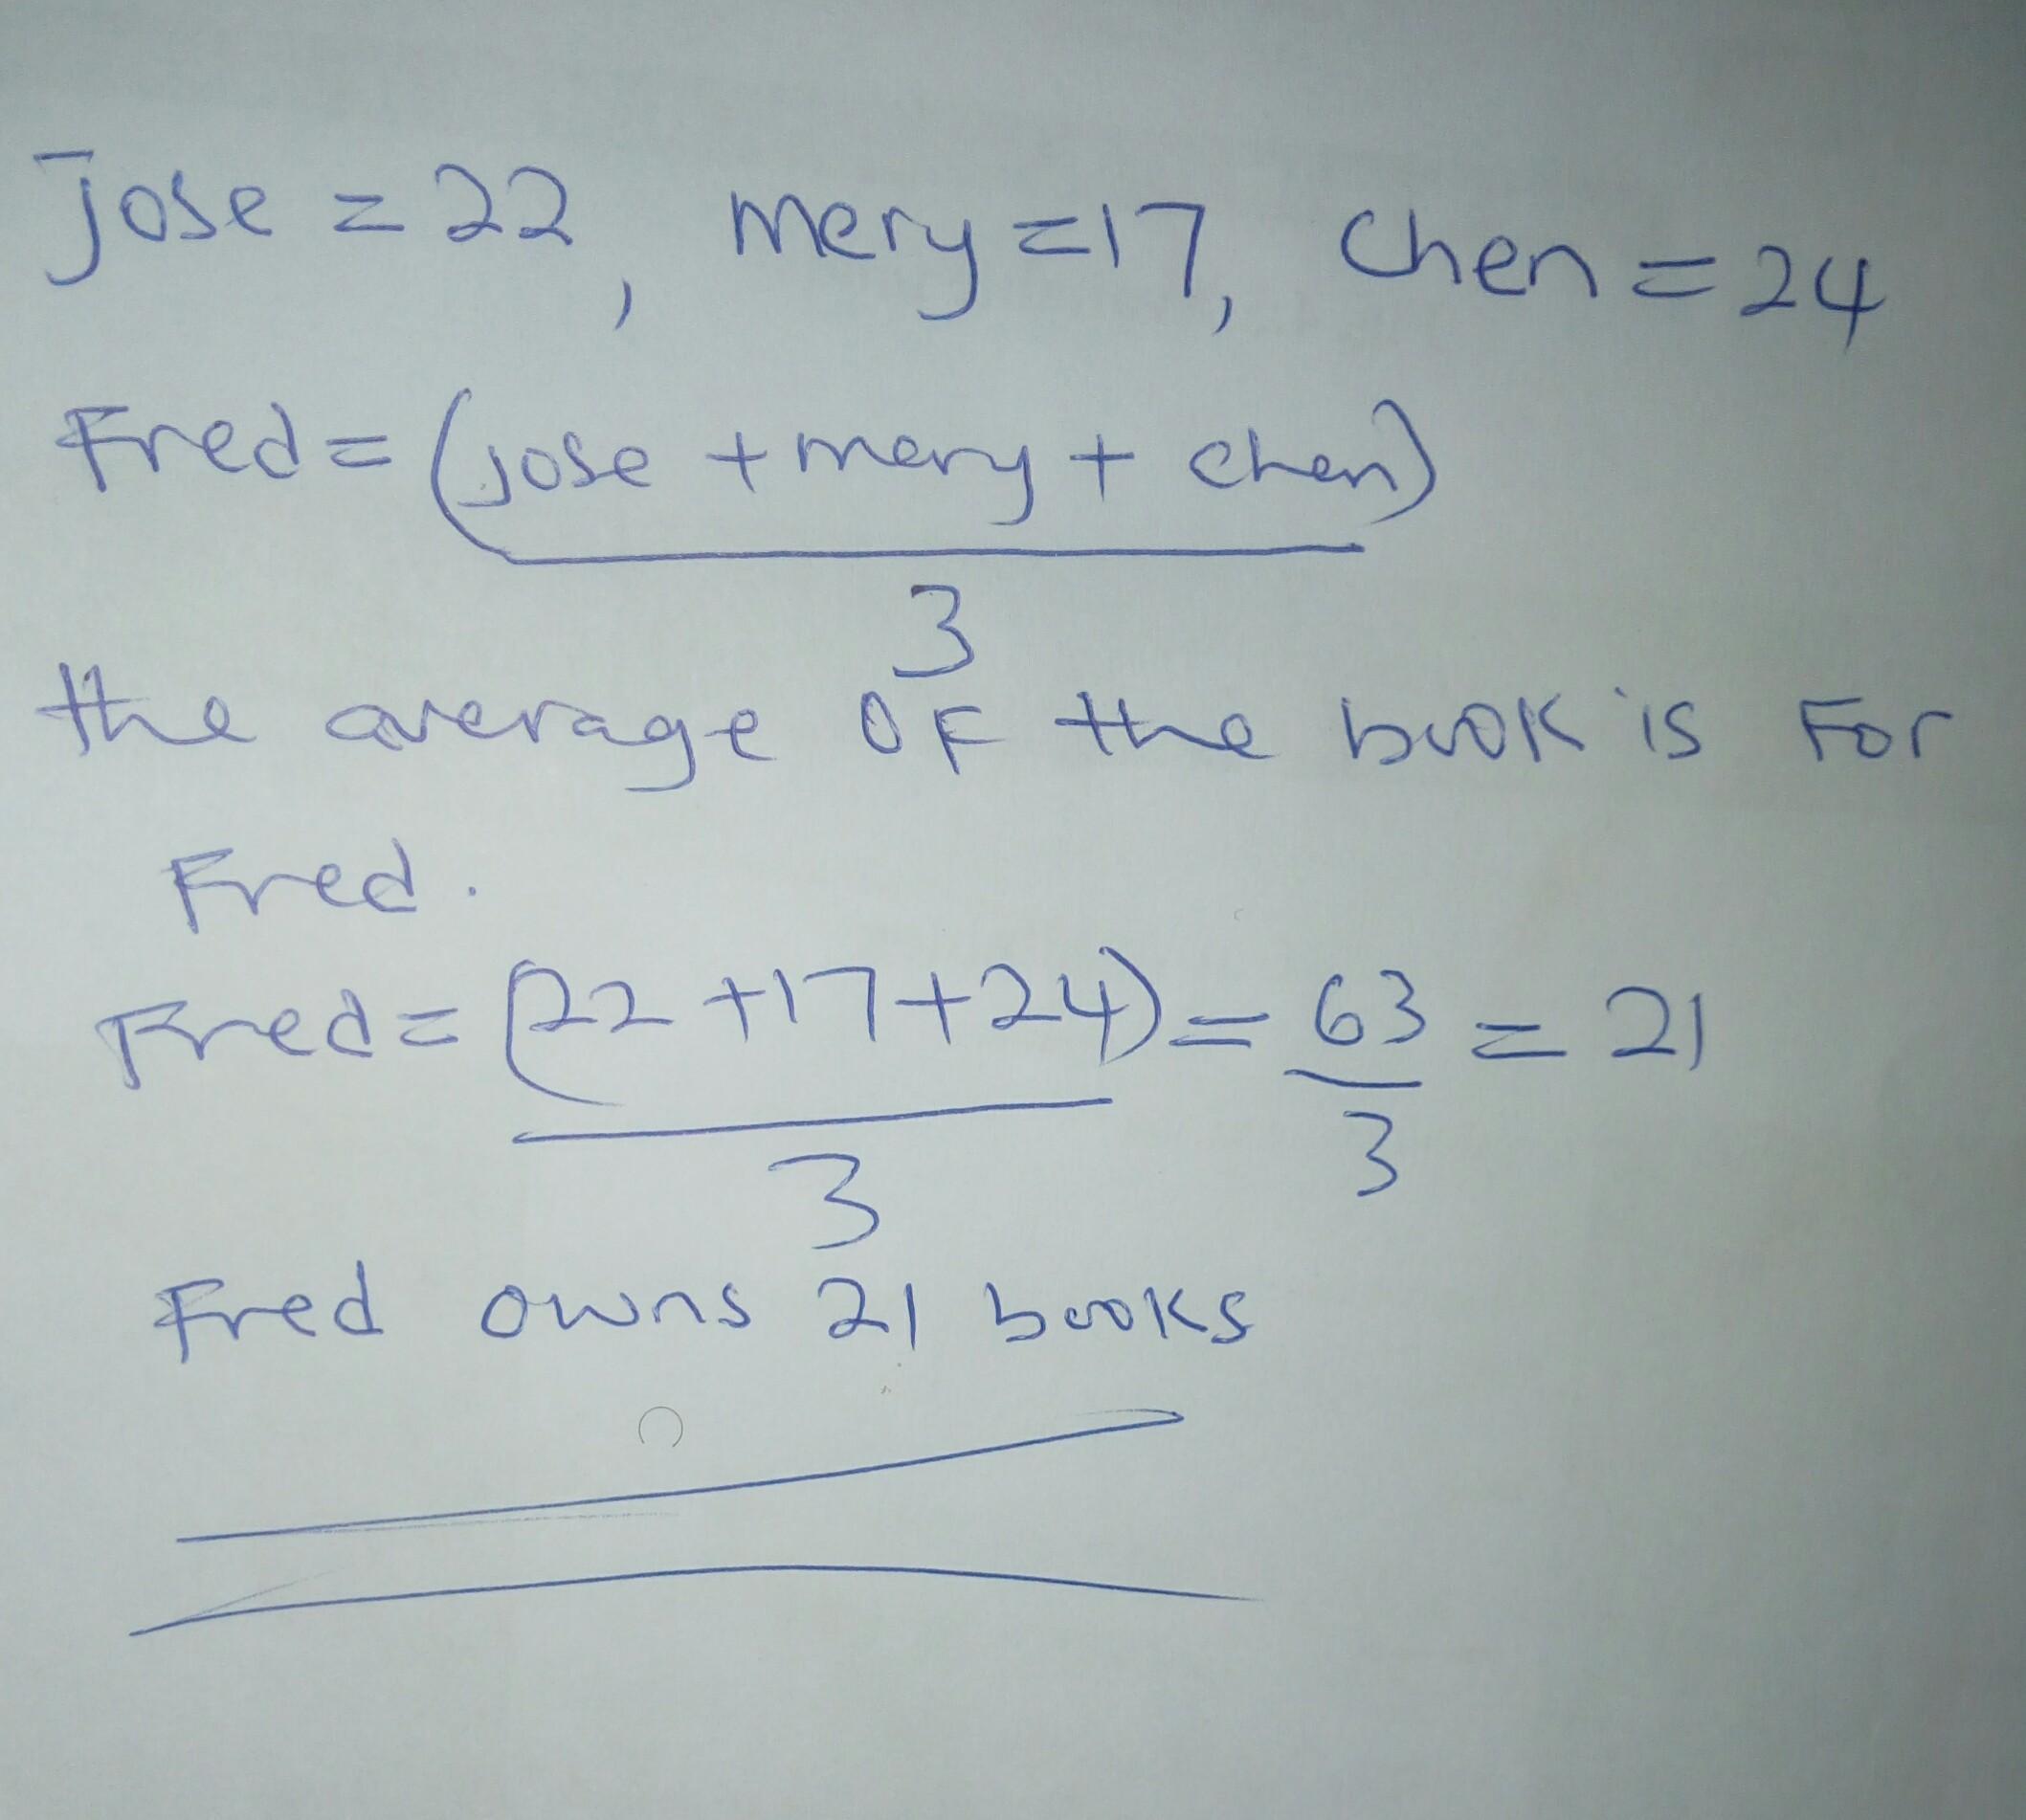 Jose = 22, mery = 17, Chen = 24
Fred = (jose + mery + chen)
3
the average OF the book is For
Fred.
Fred = (22 + 17 + 24) = 63 = 21
3 3
Fred owns 21 books